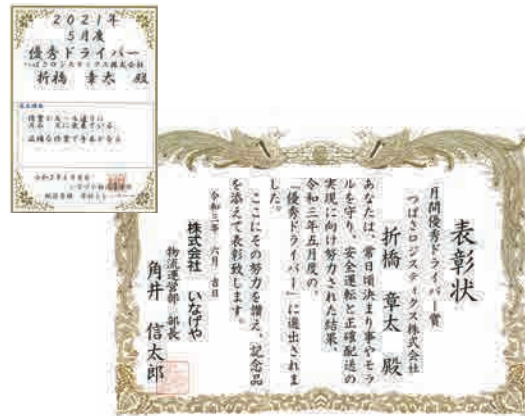 2021年
5月度
優秀ドライバー
つばさロジスティクス株式会社
折橋 章太 殿
表彰状
月間優秀ドライバー賞
つばさロジスティクス株式会社
折橋 章太 殿
あなたは、常日頃決まり事やモラ
ルを守り、安全運転と正確配送の
実現に向け努力された結果、
令和三年五月度の、
「優秀ドライバー」に選出されま
した。
ここにその努力を讃え、記念品
を添えて表彰致します。
令和三年 六月 吉日
株式会社 いなげや
物流運営部 部長
角井 信太郎